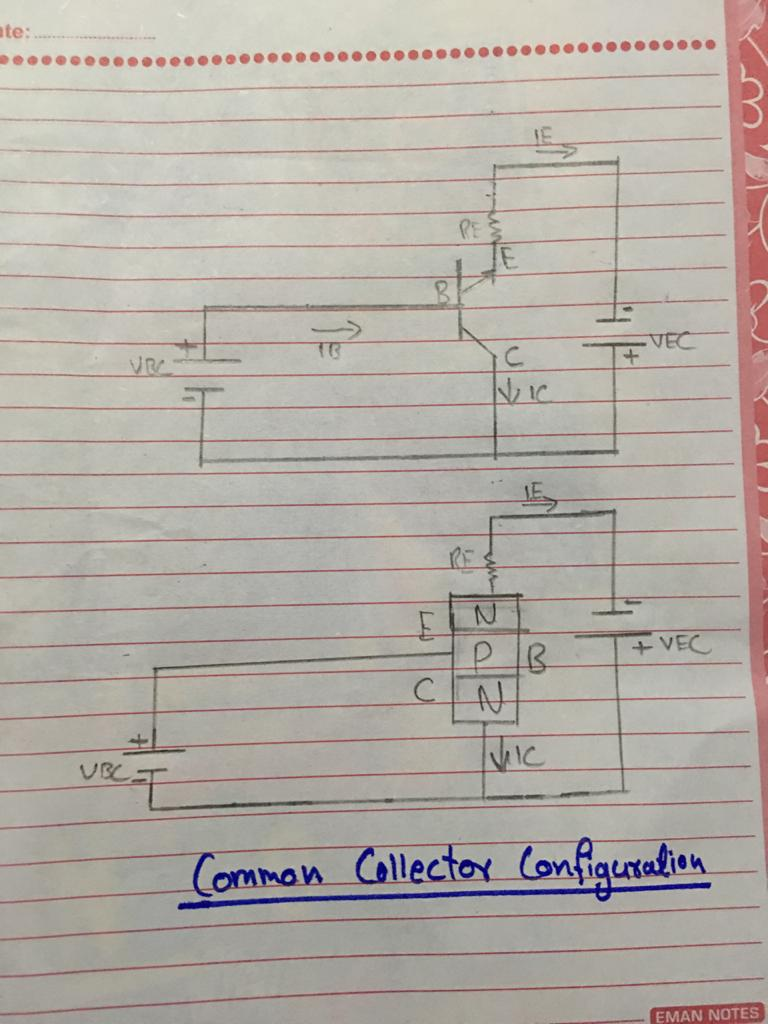 ate:
IE
RE
E
B
+
IB
VBC
-
C
IC
-
VEC
+
IE
RE
E
N
-
P
B
+ VEC
C
N
+
IC
VBC
-
Common Collector Configuration
EMAN NOTES